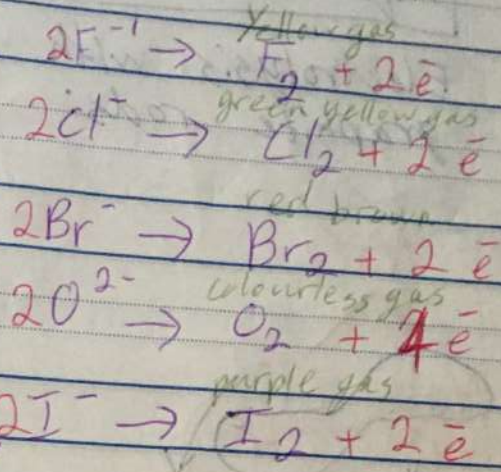 Yellow gas
2F⁻¹ → F₂ + 2e⁻
green yellow gas
2Cl⁻ → Cl₂ + 2e⁻
red brown
2Br⁻ → Br₂ + 2e⁻
colourless gas
2O²⁻ → O₂ + 4e⁻
purple gas
2I⁻ → I₂ + 2e⁻